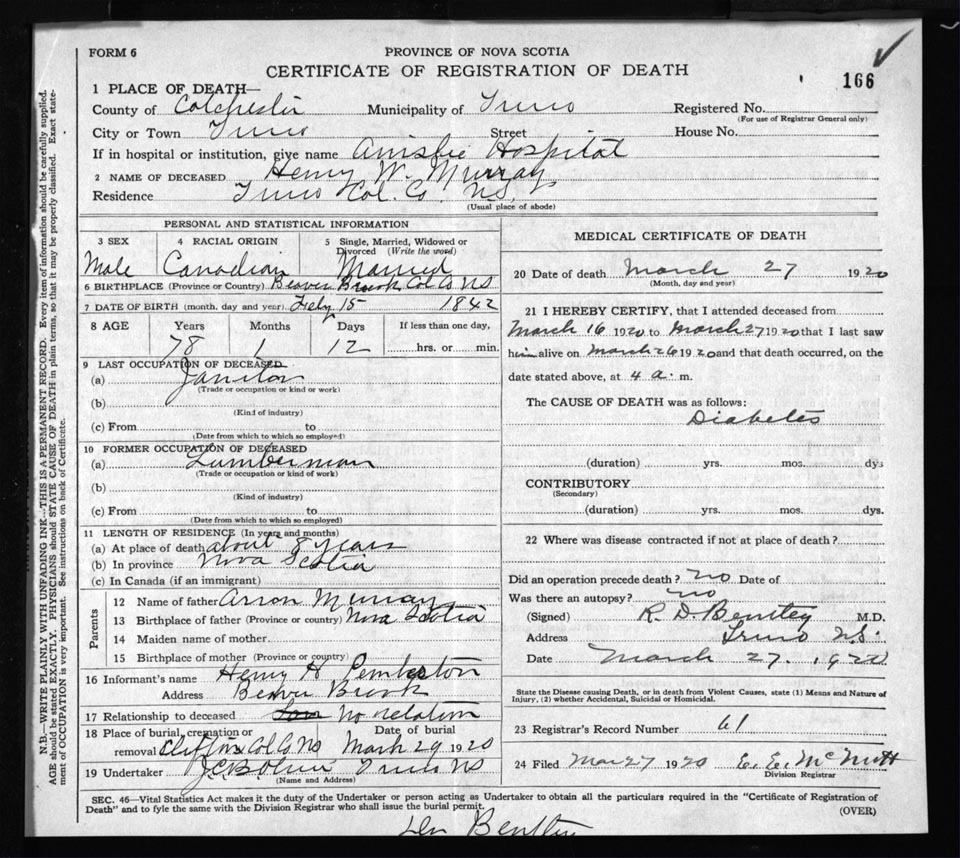 FORM 6
PROVINCE OF NOVA SCOTIA
CERTIFICATE OF REGISTRATION OF DEATH
166
1 PLACE OF DEATH—
County of Colchester Municipality of Truro Registered No.
(For use of Registrar General only)
City or Town Truro Street House No.
If in hospital or institution, give name Ainslie Hospital
2 NAME OF DECEASED Henry W. Murray
Residence Truro Col. Co. N.S.
(Usual place of abode)
PERSONAL AND STATISTICAL INFORMATION
3 SEX 4 RACIAL ORIGIN 5 Single, Married, Widowed or
Divorced (Write the word)
Male Canadian Married
6 BIRTHPLACE (Province or Country) Beaver Brook Col Co NS
7 DATE OF BIRTH (month, day and year) Feby 15 1842
8 AGE Years Months Days If less than one day,
78 1 12 hrs. or min.
9 LAST OCCUPATION OF DECEASED
(a) Janitor
(Trade or occupation or kind or work)
(b)
(Kind of industry)
(c) From to
(Date from which to which so employed)
10 FORMER OCCUPATION OF DECEASED
(a) Lumberman
(Trade or occupation or kind of work)
(b)
(Kind of industry)
(c) From to
(Date from which to which so employed)
11 LENGTH OF RESIDENCE (In years and months)
(a) At place of death about 8 years
(b) In province Nova Scotia
(c) In Canada (if an immigrant)
Parents
12 Name of father Arron Murray
13 Birthplace of father (Province or country) Nova Scotia
14 Maiden name of mother
15 Birthplace of mother (Province or country)
16 Informant's name Henry H Pemberton
Address Beaver Brook
17 Relationship to deceased Son no relation
18 Place of burial, cremation or Date of burial
removal Clifton Col Co NS March 29 1920
19 Undertaker Truro NS
(Name and Address)
MEDICAL CERTIFICATE OF DEATH
20 Date of death March 27 1920
(Month, day and year)
21 I HEREBY CERTIFY, that I attended deceased from
March 16 1920 to March 27 1920 that I last saw
him alive on March 26 1920 and that death occurred, on the
date stated above, at 4 a. m.
The CAUSE OF DEATH was as follows:
Diabetes
(duration) yrs. mos. dys
CONTRIBUTORY
(Secondary)
(duration) yrs. mos. dys.
22 Where was disease contracted if not at place of death?
Did an operation precede death? no Date of
Was there an autopsy? no
(Signed) R. D. Bentley M.D.
Address Truro N.S.
Date March 27. 1920
State the Disease causing Death, or in death from Violent Causes, state (1) Means and Nature of
Injury, (2) whether Accidental, Suicidal or Homicidal.
23 Registrar's Record Number 61
24 Filed Mar 27 1920 E. E. McNutt
Division Registrar
SEC. 46—Vital Statistics Act makes it the duty of the Undertaker or person acting as Undertaker to obtain all the particulars required in the "Certificate of Registration of
Death" and to fyle the same with the Division Registrar who shall issue the burial permit.
(OVER)
Dr Bentley
N.B.—WRITE PLAINLY WITH UNFADING INK—THIS IS A PERMANENT RECORD. Every item of information should be carefully supplied.
AGE should be stated EXACTLY. PHYSICIANS should STATE CAUSE OF DEATH in plain terms, so that it may be properly classified. Exact state-
ment of OCCUPATION is very important. See instructions on back of Certificate.